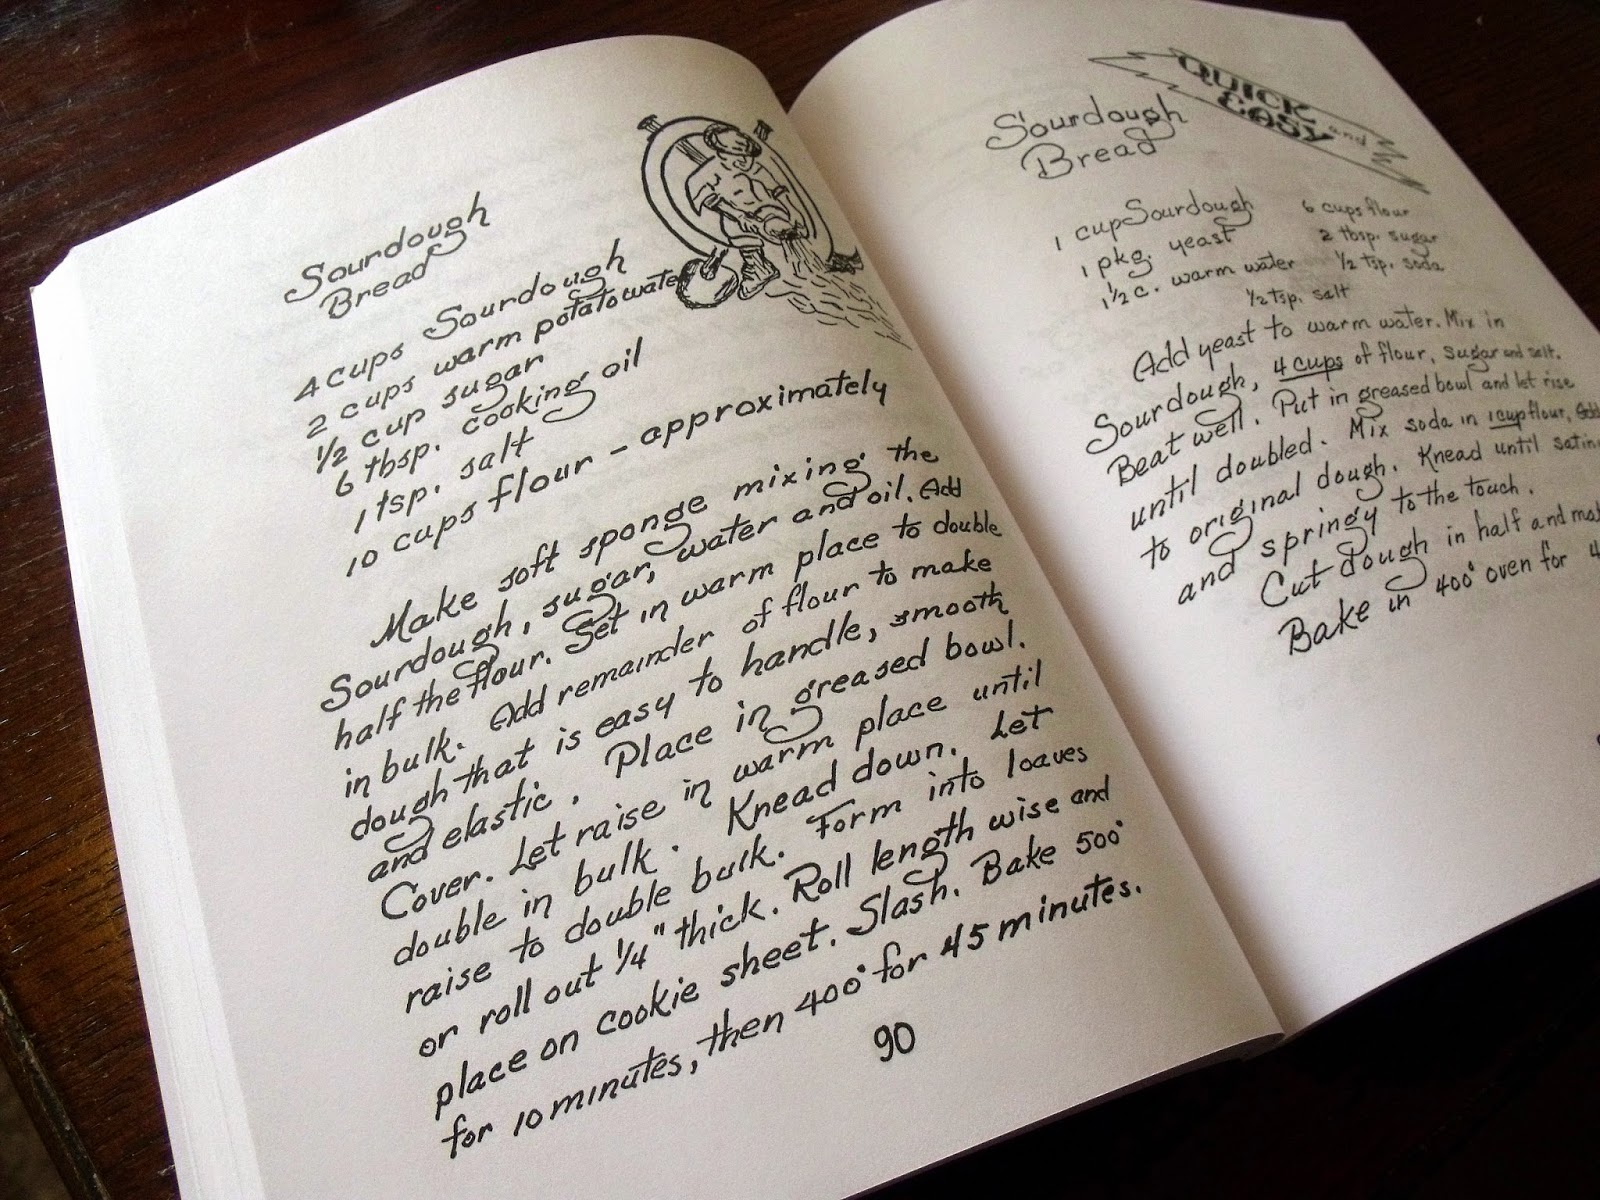 Sourdough
Bread
4 cups Sourdough
2 cups warm potato water
1/2 cup sugar
6 tbsp. cooking oil
1 tsp. salt
10 cups flour - approximately
Make soft sponge mixing the
Sourdough, sugar, water and oil. Add
half the flour. Set in warm place to double
in bulk. Add remainder of flour to make
dough that is easy to handle, smooth
and elastic. Place in greased bowl.
Cover. Let raise in warm place until
double in bulk. Knead down. Let
raise to double bulk. Form into loaves
or roll out 1/4" thick. Roll length wise and
place on cookie sheet. Slash. Bake 500°
for 10 minutes, then 400° for 45 minutes.
90
QUICK
and
EASY
Sourdough
Bread
1 cup Sourdough
1 pkg. yeast
1 1/2 c. warm water
6 cups flour
2 tbsp. sugar
1/2 tsp. soda
1/2 tsp. salt
Add yeast to warm water. Mix in
Sourdough, 4 cups of flour, sugar and salt.
Beat well. Put in greased bowl and let rise
until doubled. Mix soda in 1 cup flour, Add
to original dough. Knead until
and springy to the touch.
Cut dough in half and
Bake in 400° oven for